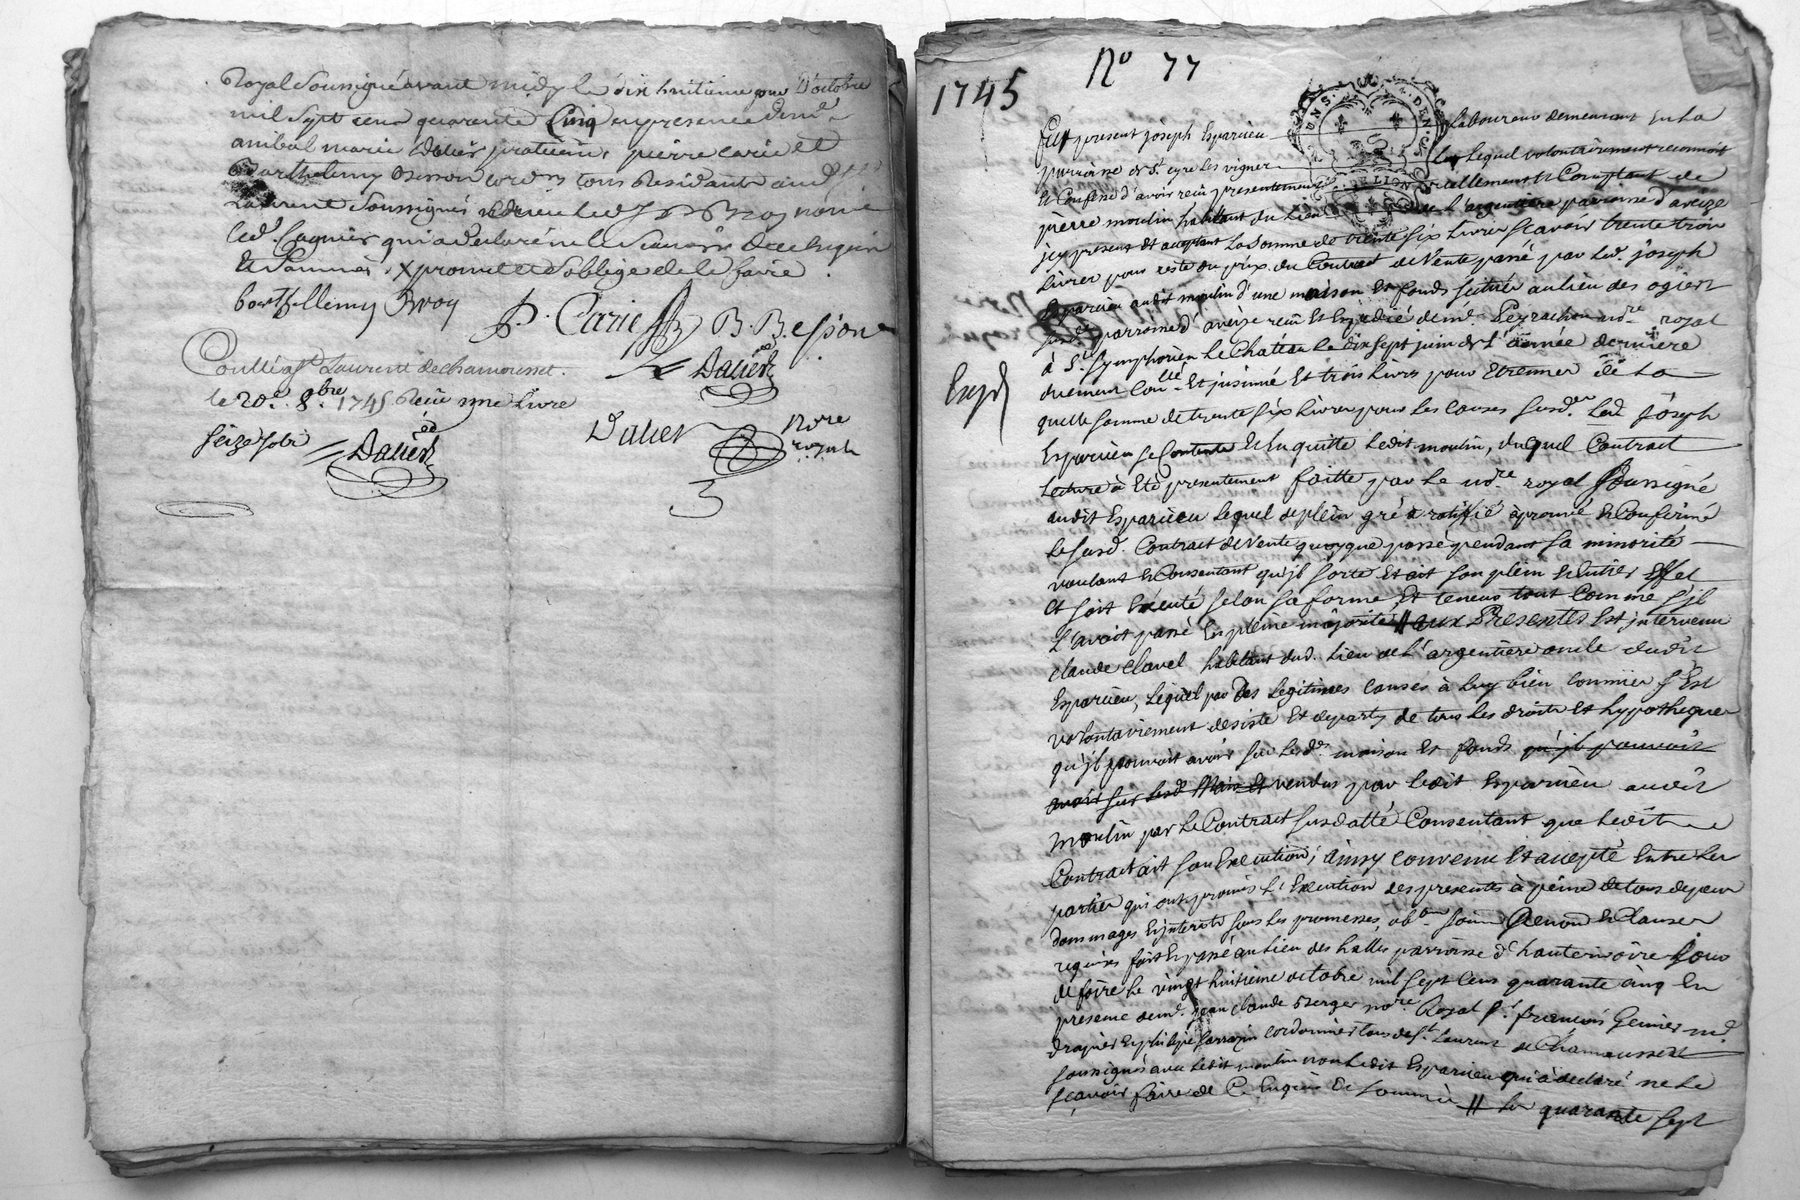 Royal soussigné avant midy le dix huitième jour d'octobre
mil sept cens quarante Cinq en presence de me
anibal marie Dalier praticien, pierre carie et
Barthelemy Besson tous residants aud. st
Laurent soussignés
led. qui a declaré ne le scavoir de ce enquis
et sommé x promet et s'oblige de le faire
barthellemy Broy P. Carie B. Besson
Dalier
Conllé a st Laurent de chamousset
le 20e 8bre 1745 Reçu une livre
seize sols Dalier
Dalier Nore royal
1745
No 77
Fut present joseph Esparcieu laboureur demeurant en la
parroisse de st. cyre les vignes lequel volontairement reconnoit
et Confesse d'avoir reçu presentement reellement et Comptant de
pierre moulin habitant du lieu de l'argentiere parroisse d'aveize
icy present et aceptant la somme de trente six livres scavoir trente trois
livres pour reste du prix du Contract de Vente passé par led. joseph
Esparcieu audit moulin d'une maison et fonds scitués au lieu des ogiers
susd. parroisse d'aveize reçu et Expedié de me. Peyrachon nore. royal
à St. Symphorien le Château le dix sept juin de l'année derniere
duement Conllé. et jnsinué et trois livres pour Etrennes de la
Expd
quelle somme de trente six livres pour les causes susd.es led. joseph
Esparcieu se Contente et En quitte ledit moulin, duquel Contract
lecture à Eté presentement faitte par le nore. royal soussigné
audit Esparcieu lequel de plein gré a ratiffié aprouvé et Confirmé
le susd. Contract de Vente quoyque passé pendant sa minorité
voulant et Consentant qu'jl sorte et ait son plein et Entier Effet
et soit Executé selon sa forme et teneur tout comme s'jl
l'avoit passé En pleine majorité // aux Presentes Est jntervenu
claude clavel habitant dud. lieu de l'argentiere oncle dudit
Esparcieu, lequel par des legitimes causes à luy bien connües s'Est
volontairement desisté et departy de tous les droits et hypotheques
qu'jl pouvoit avoir sur lesd.es maison et fonds qu'jl pouvoit
avoir sur lesd. Maison et vendus par ledit Esparcieu audit
moulin par le Contract susdatté Consentant que ledit
Contract ait son Execution; ainsy convenu et accepté Entre les
parties qui ont promis l'Execution des presentes à peine de tous depens
dommages Interets sous les promesses, obon. soûm. Renon. et clauses
requises fait et passé au lieu des halles parroisse d'hauterivoire jour
de foire le vingt huitieme octobre mil sept cens quarante cinq En
presence de me. jean claude Berger nore. Royal sr. françois Genier md.
drapier et philipe sarrazin cordonnier tous de St. Laurent de Chamousset
soussignés avec ledit moulin non ledit Esparcieu qui à declaré ne le
sçavoir faire de Ce Enquis et sommé // les quarante sept